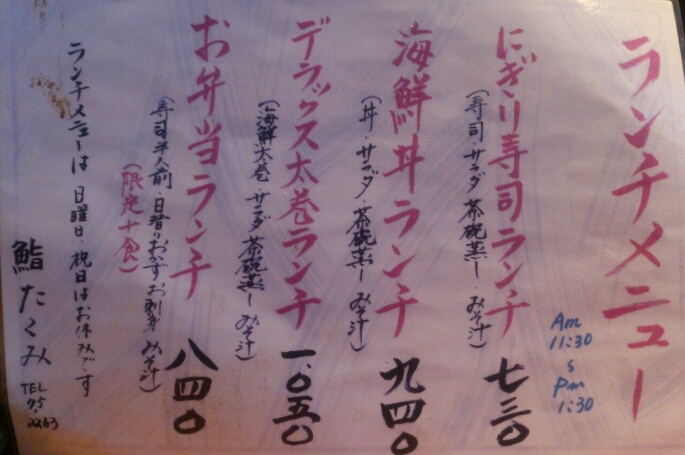 ランチメニュー
Am
11:30
s
Pm
1:30
にぎり寿司ランチ 七三〇
(寿司・サラダ 茶碗蒸し・みそ汁)
海鮮丼ランチ 九四〇
(丼・サラダ・茶碗蒸し みそ汁)
デラックス太巻ランチ 一、〇五〇
(海鮮太巻・サラダ 茶碗蒸し みそ汁)
お弁当ランチ 八四〇
(寿司半人前・日替りおかず お刺身 みそ汁)
(限定十食)
ランチメニューは 日曜日・祝日はお休みです
鮨 たくみ
TEL
75-
2263